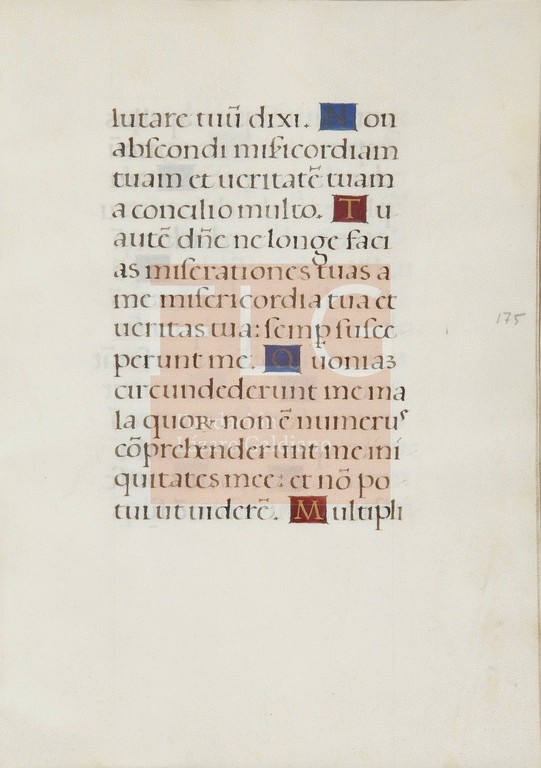 lutare tuũ dixi. Non
abſcondi miſicordiam
tuam et ueritatẽ tuam
a concilio multo. Tu
autẽ dñe ne longe faci
as miſerationes tuas a
me miſericordia tua et
ueritas tua: ſemp ſuſce
perunt me. Quoniaʒ
circundederunt me ma
la quoꝝ non ẽ numeruˢ
cõprehenderunt me ini
quitates mee: et nõ po
tui ut uiderẽ. Multipli
175
FLG
Fundación
Lázaro Galdiano